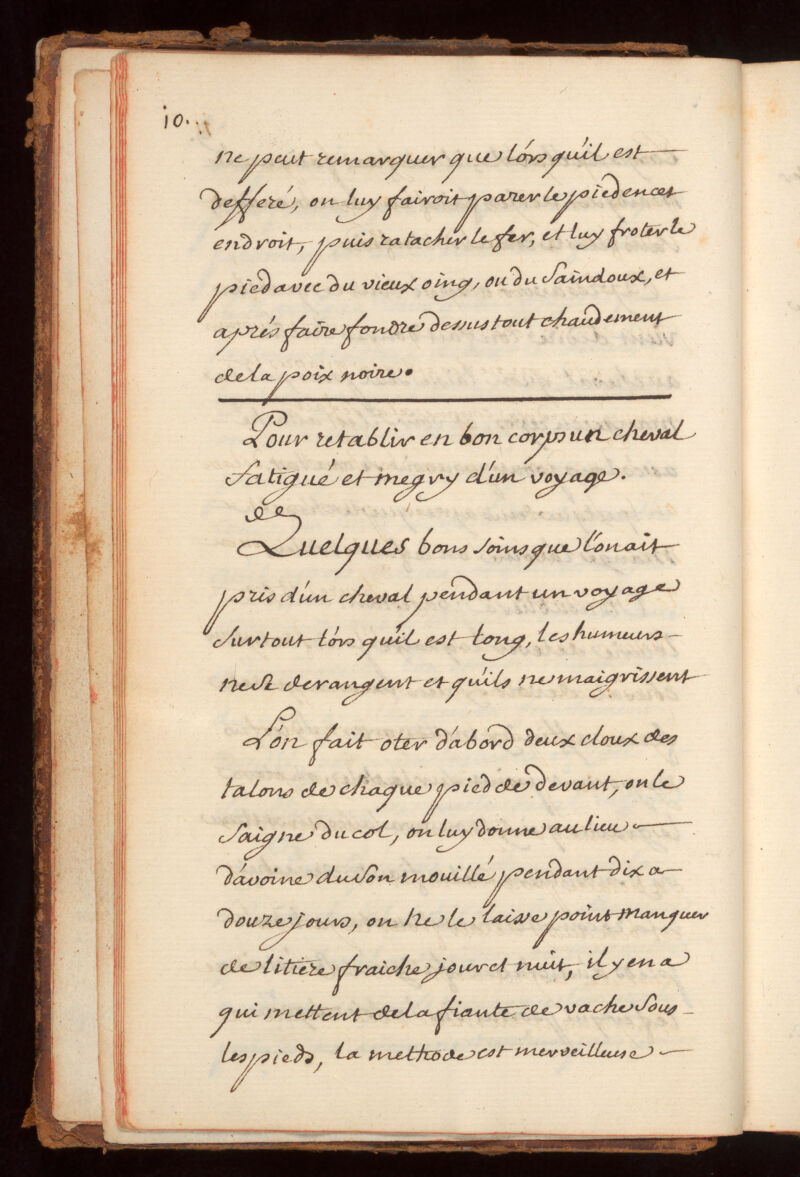 10.
ne peut remarquer que lórs qu'il est
defferé, on luy fairoit parer le pied en cet
endroit, puis ratacher le fer, et luy froter le
pied avec du vieux oing, ou du Saindoux, et
aprés faire fondre dessus tout chaudement
de la poix noire.
Pour retablir en bon corps un cheval
fatigué et megry d'un voyage.
Quelques bons soins que l'on ait
pris d'un cheval pendant un voyage
surtout lórs qu'il est long, les humeurs
ne se derangent et qu'ils ne maigrissent
L'on fait oter d'abord deux cloux des
talons de chaque pied de devant, on le
Saigne du col, on luy donne au lieu
d'avoine du son mouillé pendant dix a
douze jours, on ne le laisse point manquer
de litiere fraiche jour et nuit, il y en a
qui mettent de la fiante de vache sous
les pieds, la methode est merveilleuse